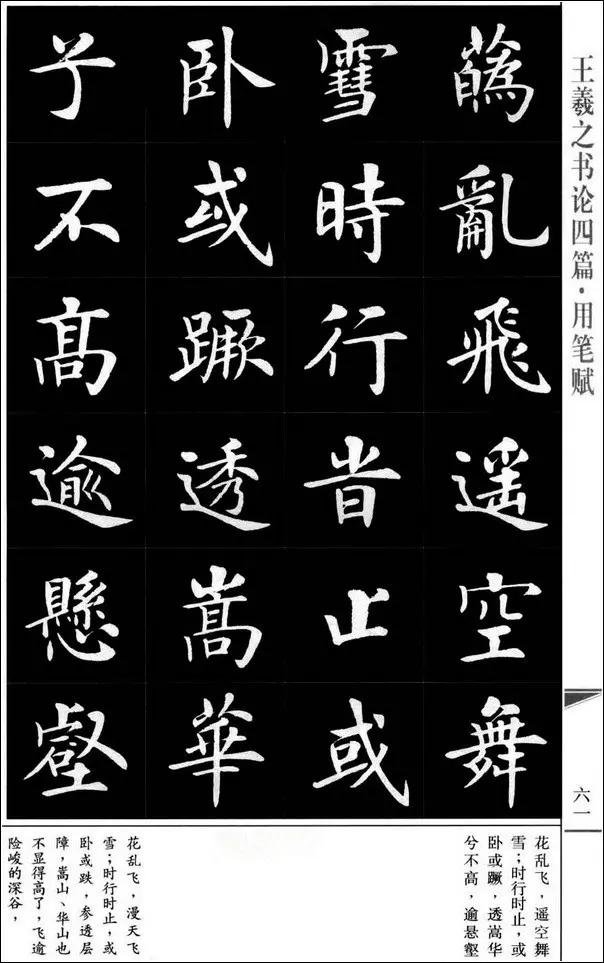 王羲之书论四篇·用笔赋
亂飛遥空舞
雪時行旹止或
卧或蹶透嵩華
兮不高逾懸壑
六一
花乱飞，遥空舞
雪；时行时止，或
卧或蹶，透嵩华
兮不高，逾悬壑
花乱飞，漫天飞
雪；时行时止，或
卧或跌，参透层
障，嵩山、华山也
不显得高了，飞逾
险峻的深谷，